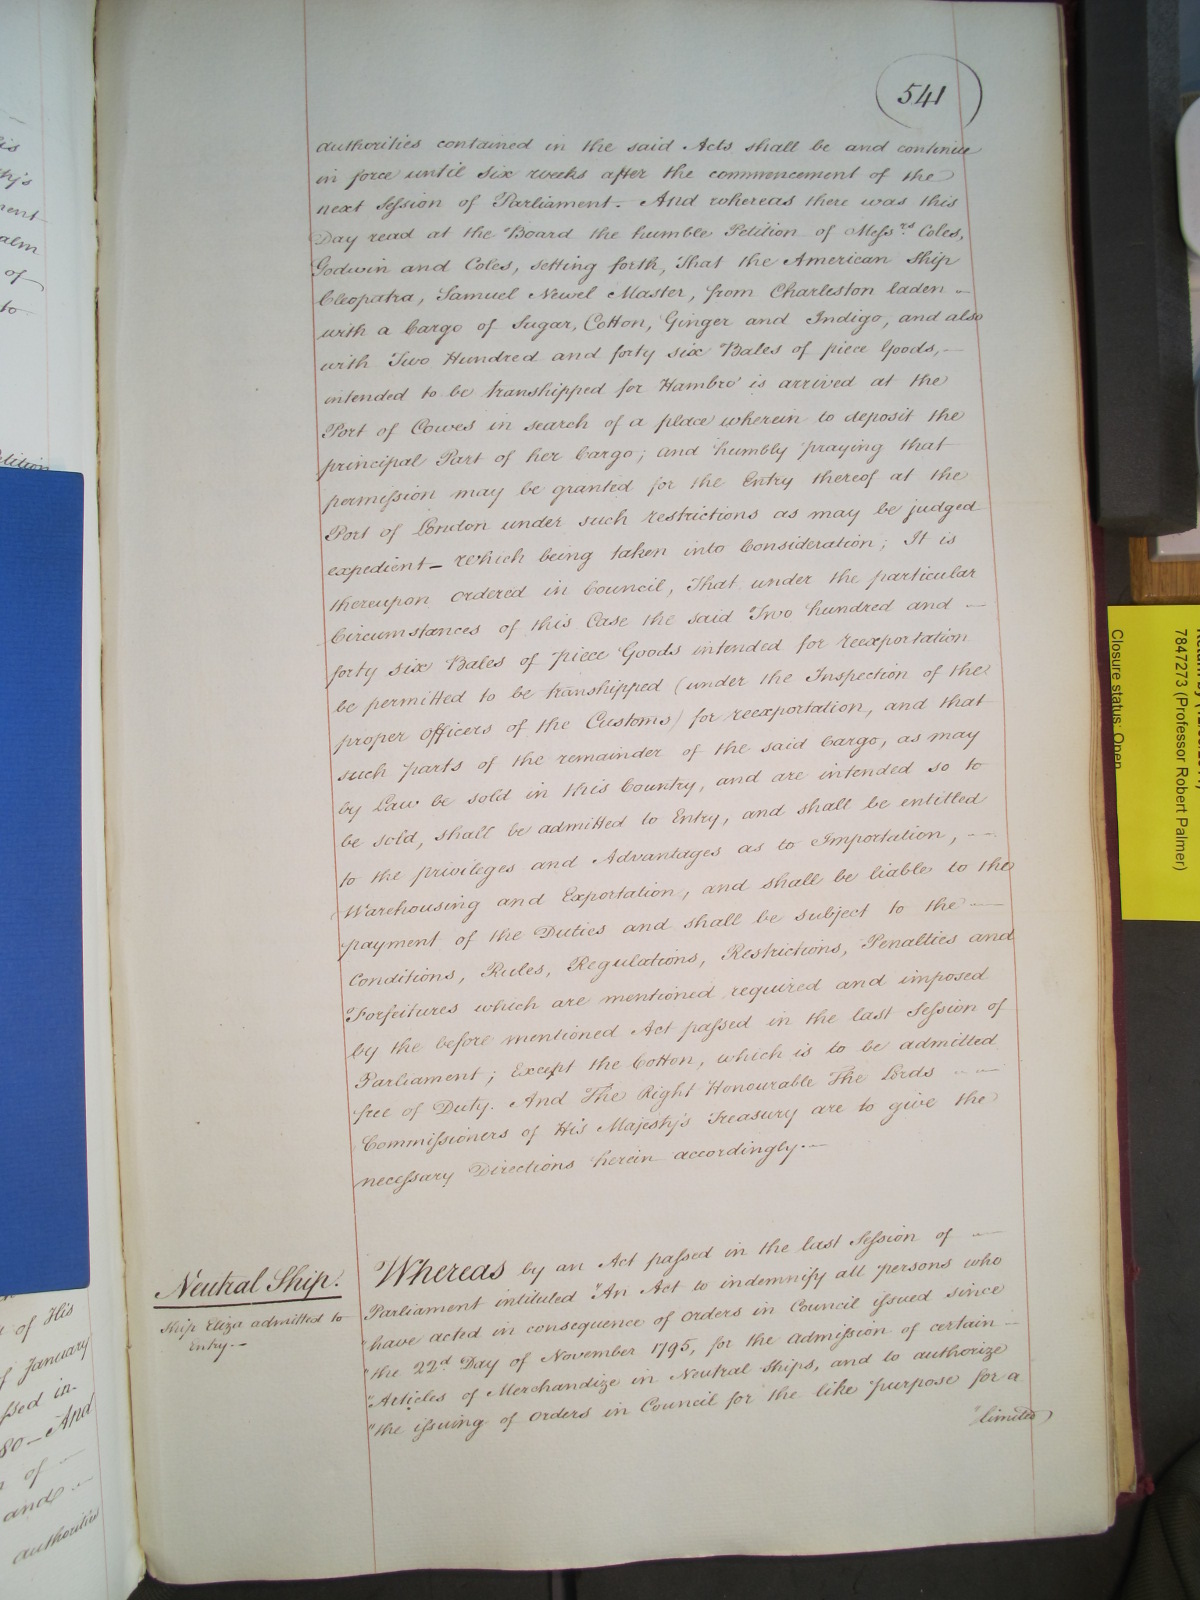 541
authorities contained in the said Acts shall be and continue
in force until six weeks after the commencement of the
next Session of Parliament. And whereas there was this
Day read at the Board the humble Petition of Messrs Coles,
Godwin and Coles, setting forth, That the American Ship
Cleopatra, Samuel Newel Master, from Charleston laden —
with a Cargo of Sugar, Cotton, Ginger and Indigo, and also
with Two Hundred and forty six Bales of piece Goods, —
intended to be transhipped for Hambro' is arrived at the
Port of Cowes in search of a place wherein to deposit the
principal Part of her Cargo; and humbly praying that
permission may be granted for the Entry thereof at the
Port of London under such restrictions as may be judged
expedient — which being taken into Consideration; It is
thereupon ordered in Council, That under the particular
Circumstances of this Case the said Two hundred and —
forty six Bales of piece Goods intended for reexportation
be permitted to be transhipped (under the Inspection of the
proper Officers of the Customs) for reexportation, and that
such parts of the remainder of the said Cargo, as may
by Law be sold in this Country, and are intended so to
be sold, shall be admitted to Entry, and shall be entitled
to the privileges and Advantages as to Importation, —
Warehousing and Exportation, and shall be liable to the
payment of the Duties and shall be subject to the —
Conditions, Rules, Regulations, Restrictions, Penalties and
Forfeitures which are mentioned required and imposed
by the before mentioned Act passed in the last Session of
Parliament; Except the Cotton, which is to be admitted
free of Duty. And The Right Honourable The Lords —
Commissioners of His Majesty's Treasury are to give the
necessary Directions herein accordingly. —
Neutral Ship.
Ship Eliza admitted to
Entry. —
Whereas by an Act passed in the last Session of —
Parliament intituled "An Act to indemnify all persons who
"have acted in consequence of Orders in Council issued since
"the 22d Day of November 1795, for the admission of certain —
"Articles of Merchandize in Neutral Ships, and to authorize
"the issuing of Orders in Council for the like purpose for a
"limited
of His
January
ssed in
80 — And
of
and
authorities
of
to
7847273 (Professor Robert Palmer)
Closure status: Open